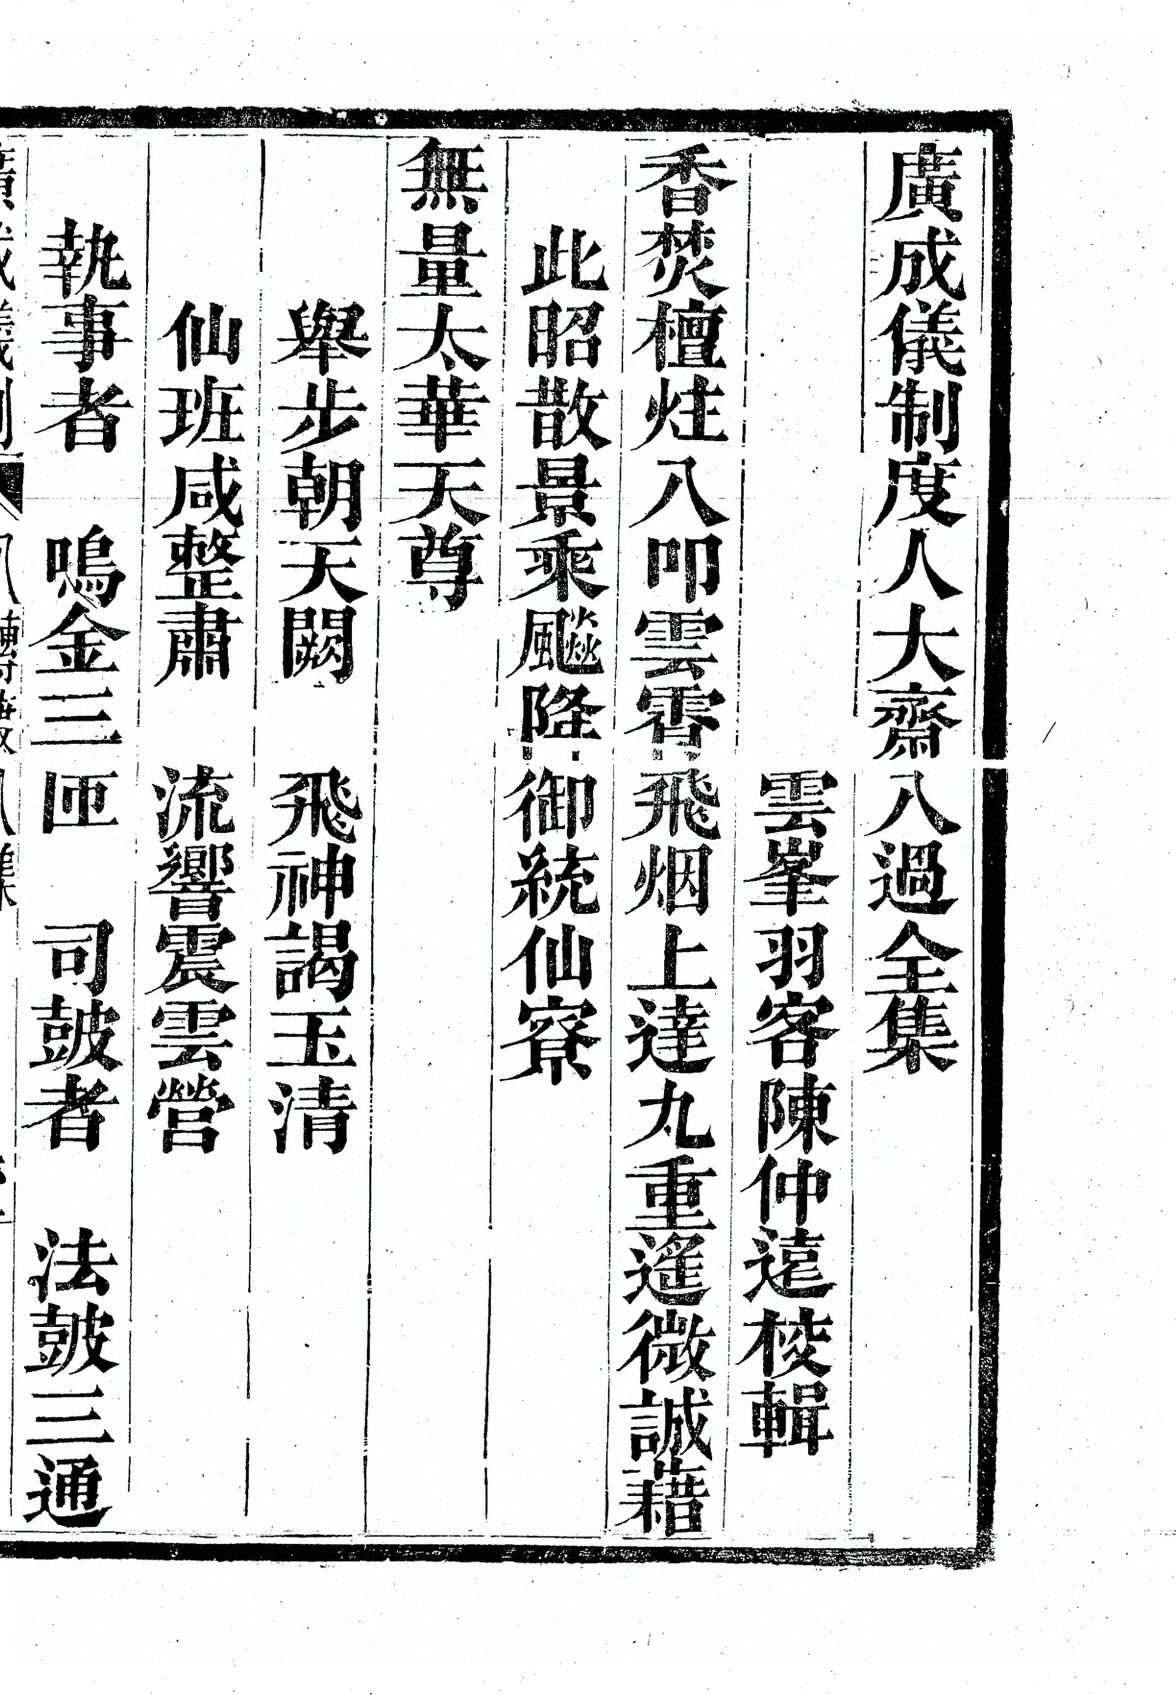 廣成儀制度人大齋八過全集
雲峯羽客陳仲遠校輯
香焚檀炷八叩雲霄飛烟上達九重遙微誠藉
此昭散景乘飈降御統仙寮
無量太華天尊
舉步朝天闕　飛神謁玉清
仙班咸整肅　流響震雲營
執事者　鳴金三匝　司皷者　法皷三通